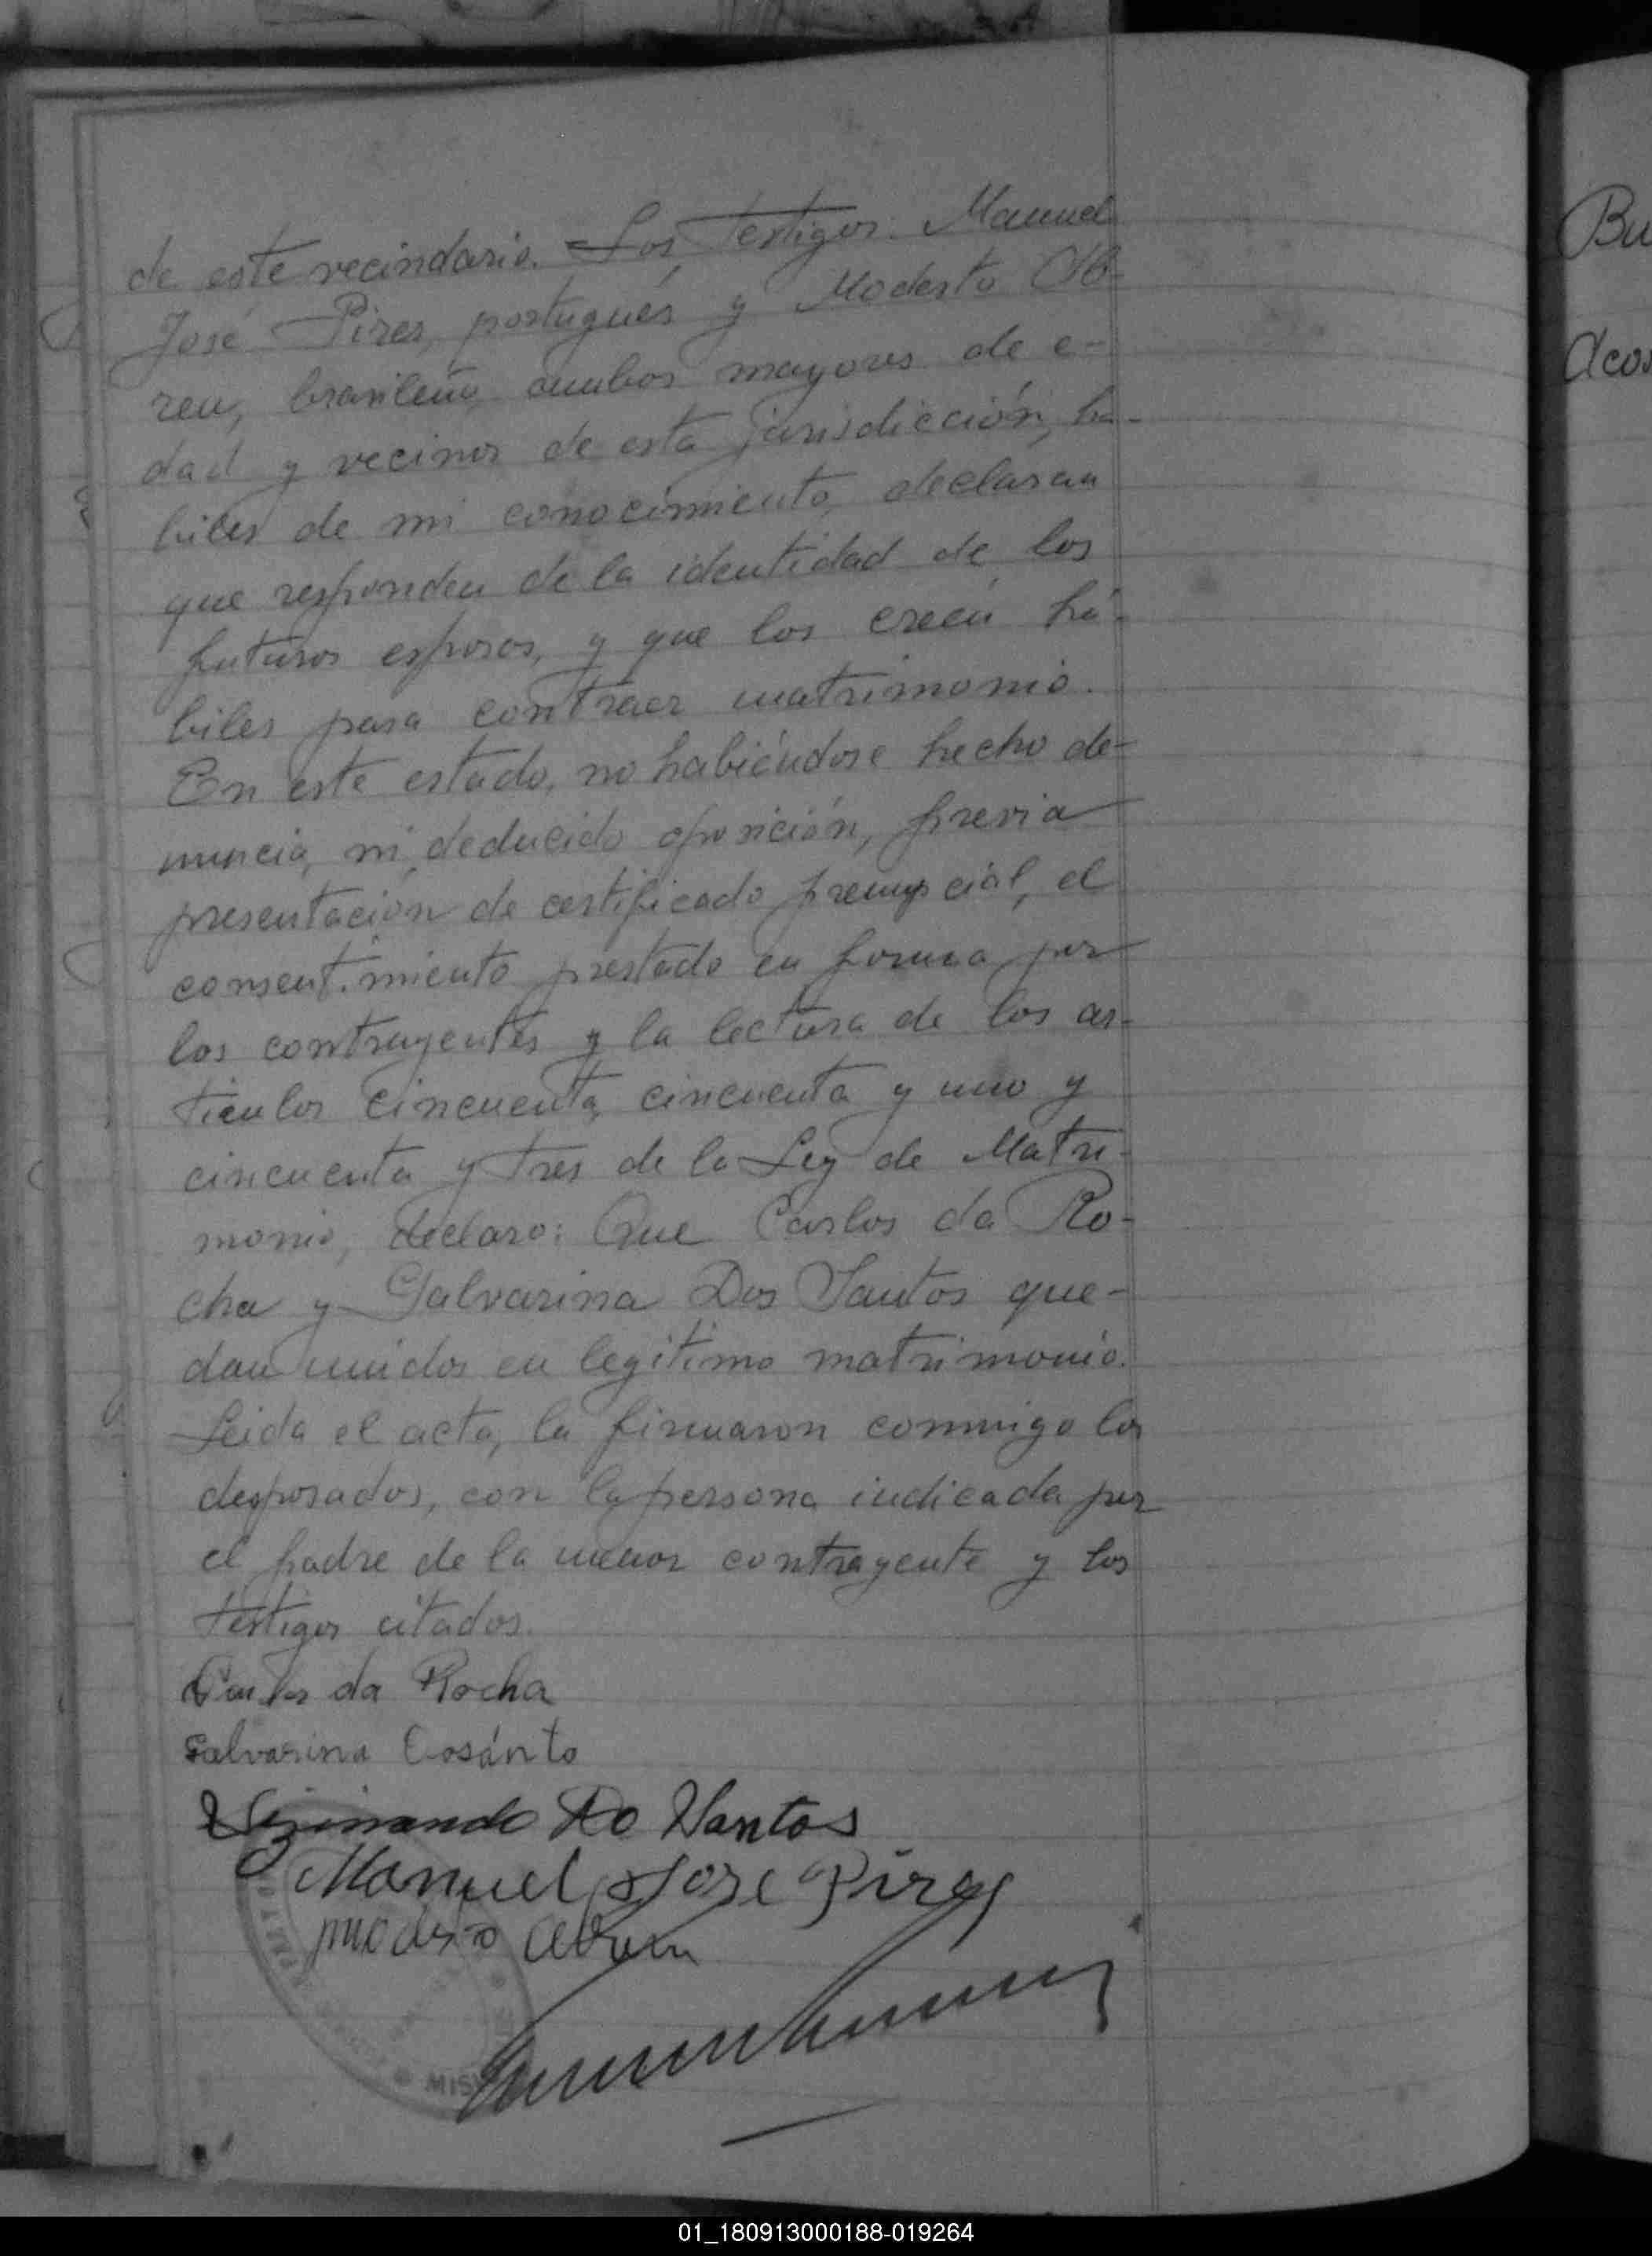 de este vecindario. Los Testigos Manuel
José Pires, portugués y Modesto Ab-
reu, brasileño, ambos mayores de e-
dad y vecinos de esta jurisdicción, ha-
biles de mi conocimiento, declaran
que responden de la identidad de los
futuros esposos, y que los creen há-
biles para contraer matrimonio.
En este estado, no habiéndose hecho de-
nuncia, ni deducido oposición, previa
presentación de certificado prenupcial, el
consentimiento prestado en forma por
los contrayentes y la lectura de los ar-
tículos cincuenta, cincuenta y uno y
cincuenta y tres de la Ley de Matri-
monio, declaro: Que Carlos da Ro-
cha y Galvarina Dos Santos que-
dan unidos en legítimo matrimonio.
Leida el acta, la firmaron conmigo los
desposados, con la persona indicada por
el padre de la menor contrayente y los
testigos citados.
Carlos da Rocha
Galvarina Dosánto
Do Santos
Manuel José Pires
modesto abreu
MIS
Bu
Acos
01_180913000188-019264